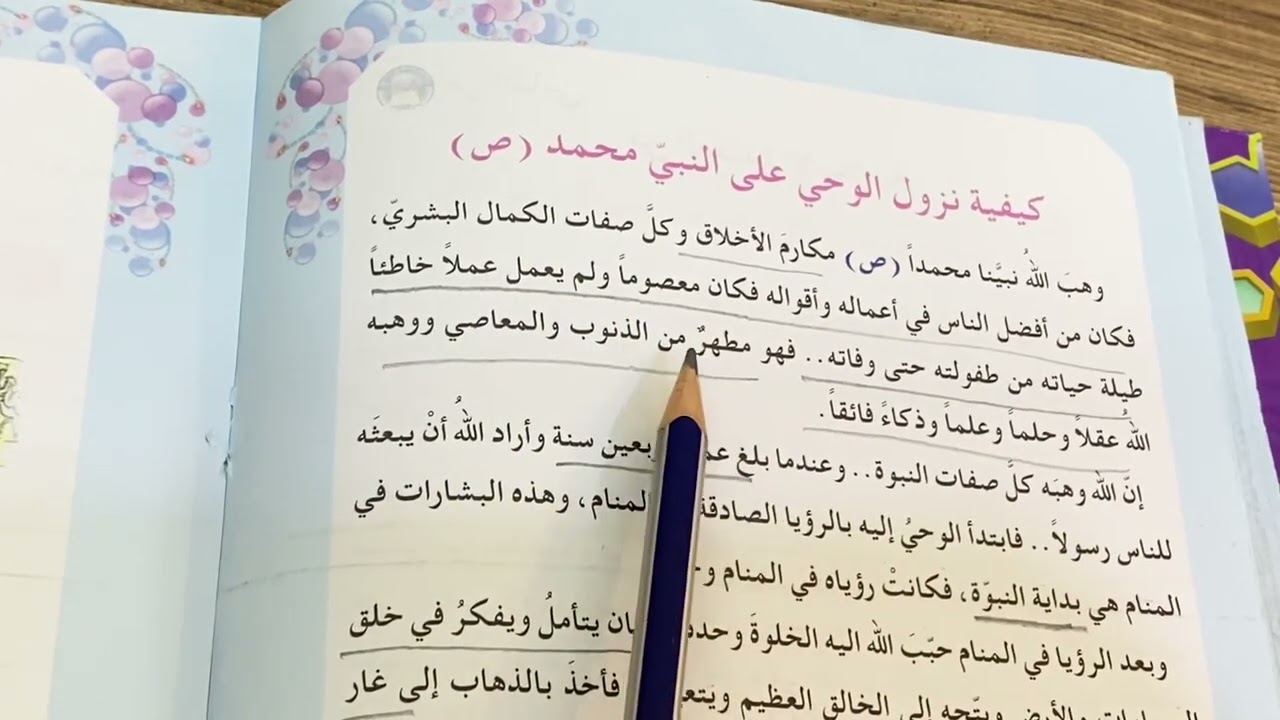 كيفية نزول الوحي على النبيّ محمد (ص)
وهبَ اللهُ نبيَّنا محمداً (ص) مكارمَ الأخلاق وكلَّ صفات الكمال البشريّ،
فكان من أفضل الناس في أعماله وأقواله فكان معصوماً ولم يعمل عملاً خاطئاً
طيلة حياته من طفولته حتى وفاته.. فهو مطهرٌ من الذنوب والمعاصي ووهبه
اللهُ عقلاً وحلماً وعلماً وذكاءً فائقاً.
إنَّ الله وهبَه كلَّ صفات النبوة.. وعندما بلغ بعين سنة وأراد اللهُ أنْ يبعثَه
للناس رسولاً.. فابتدأ الوحيُ إليه بالرؤيا الصادقة لمنام، وهذه البشارات في
المنام هي بداية النبوّة، فكانتْ رؤياه في المنام
وبعد الرؤيا في المنام حبّبَ الله اليه الخلوةَ وحده ان يتأملُ ويفكرُ في خلق
والأرض ويتّجه إلى الخالق العظيم فأخذَ بالذهاب إلى غار